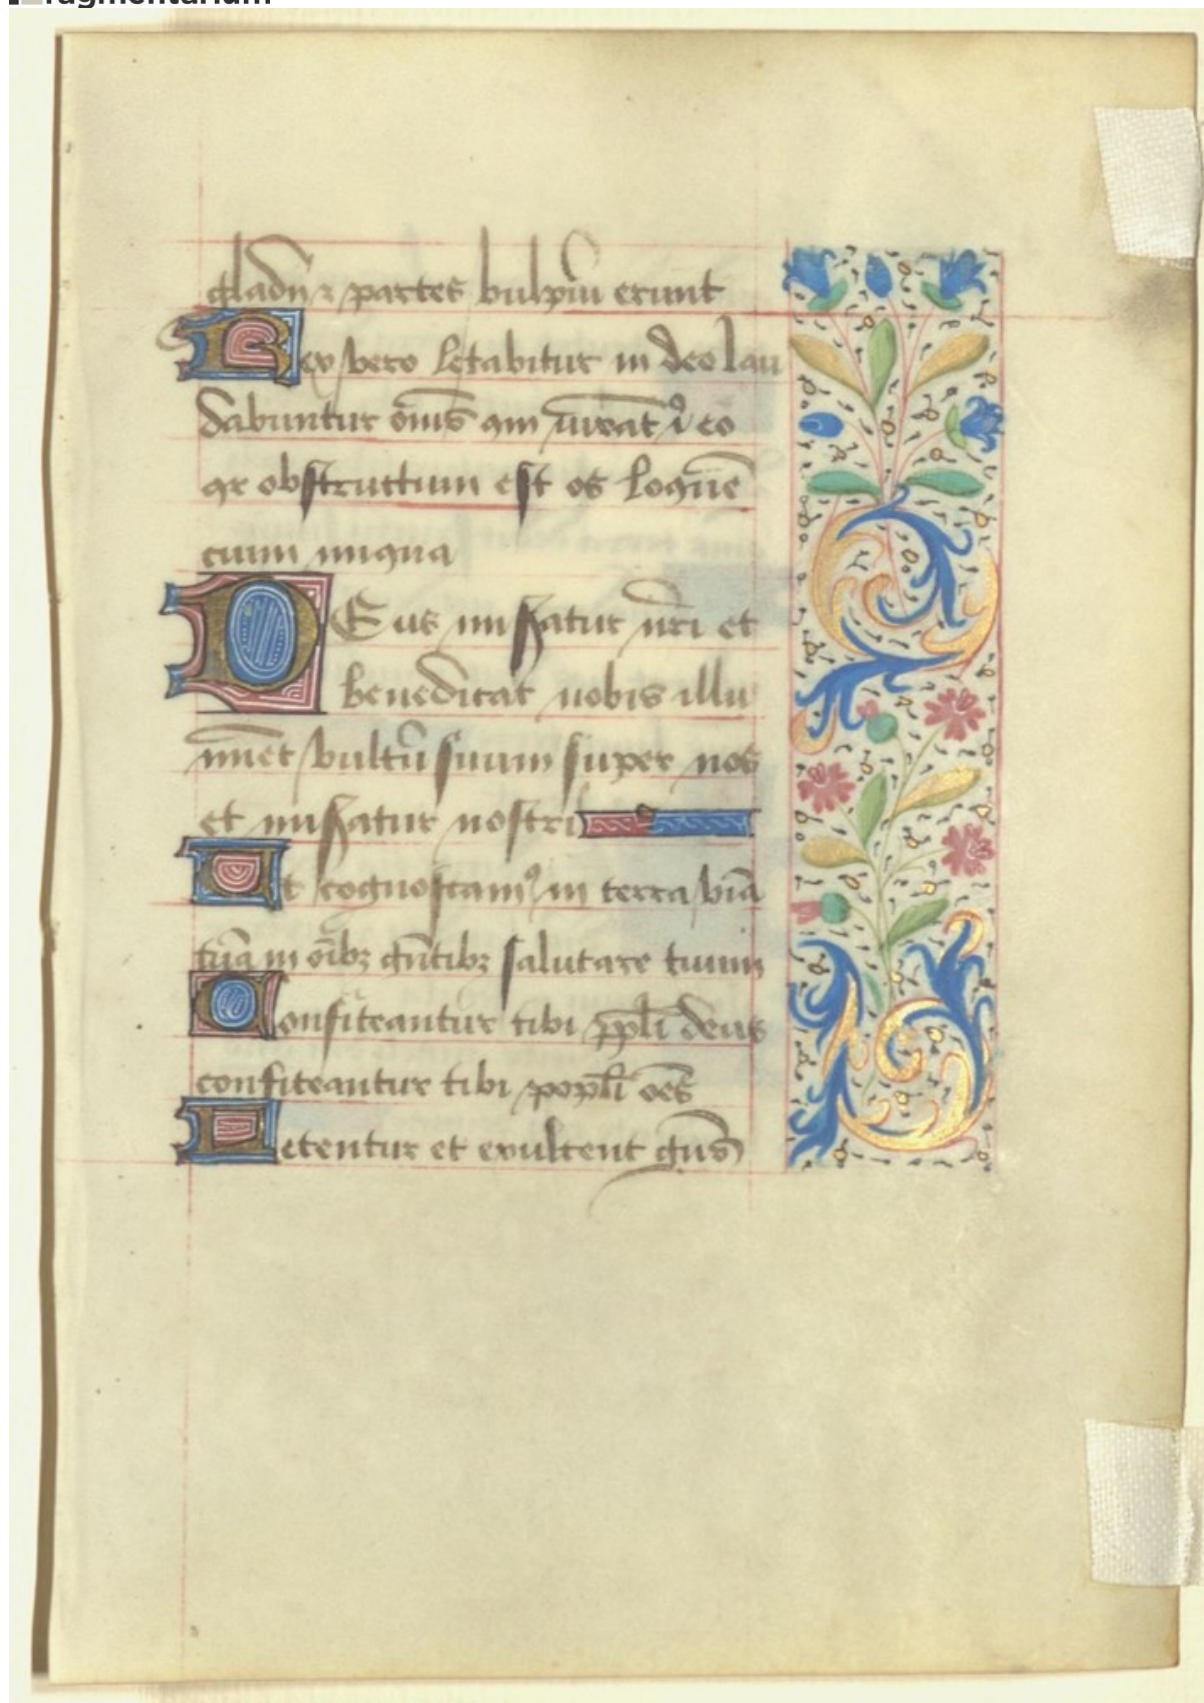 fragmentarium
gladii ⁊ partes vulpiū erunt
Rex vero letabitur in deo lau
dabuntur om̄s qui iurāt ī eo
qr obstructum est os loquē
cium iniqua
DEus misẜatur nr̄i et
benedicat nobis illu
minet vultū suum super nos
et misẜatur nostri
Ut cognoscamꝰ in terra viā
tuā in oībꝫ gētibꝫ salutare tuum
Confiteantur tibi ppl̄i deus
confiteantur tibi popl̄i oēs
Letentur et exultent gētes